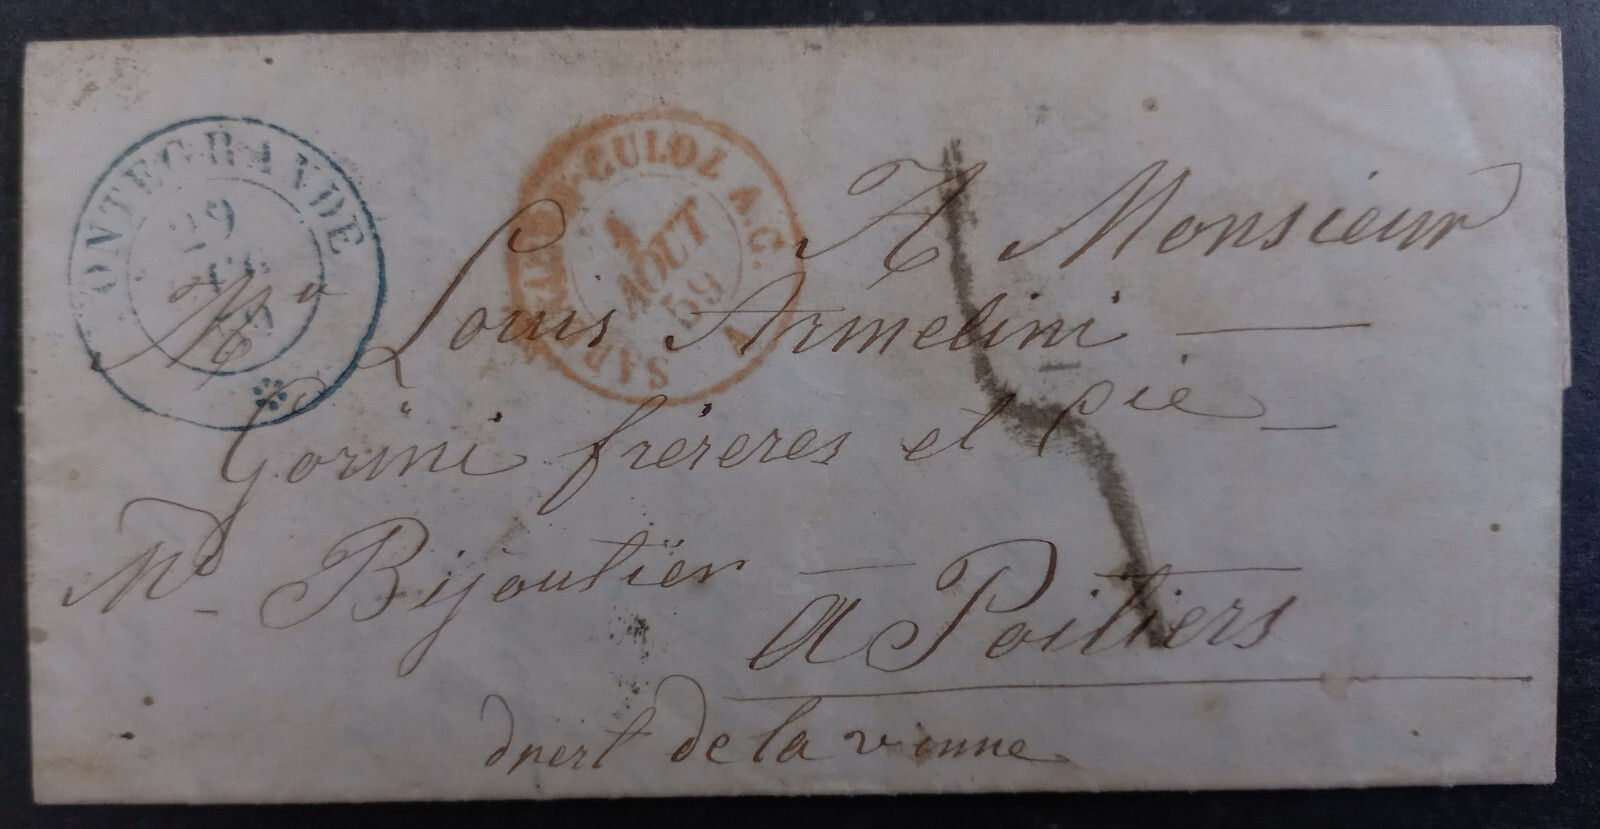 PONTEGRANDE
29
59
SARD. CULOZ A.C. A
1
AOUT
59
A Monsieur
Mr Louis Armelini
Gorini freres et Cie
Md Bijoutier
a Poitiers
de la vienne